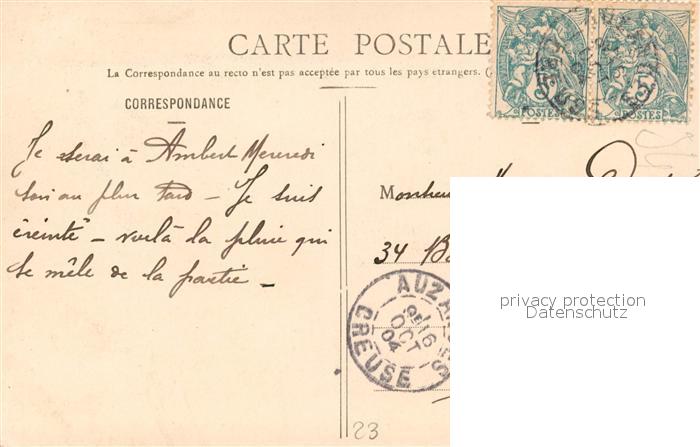 CARTE POSTALE
La Correspondance au recto n'est pas acceptée par tous les pays etrangers. (
CORRESPONDANCE
Je serai à Ambert Mercredi
soir au plus tard – Je suis
éreinté – voilà la pluie qui
se mêle de la partie –
Monsieur
34 B
5 POSTES
5 POSTES
AUZA
16
OCT
04
CREUSE
23
privacy protection
Datenschutz